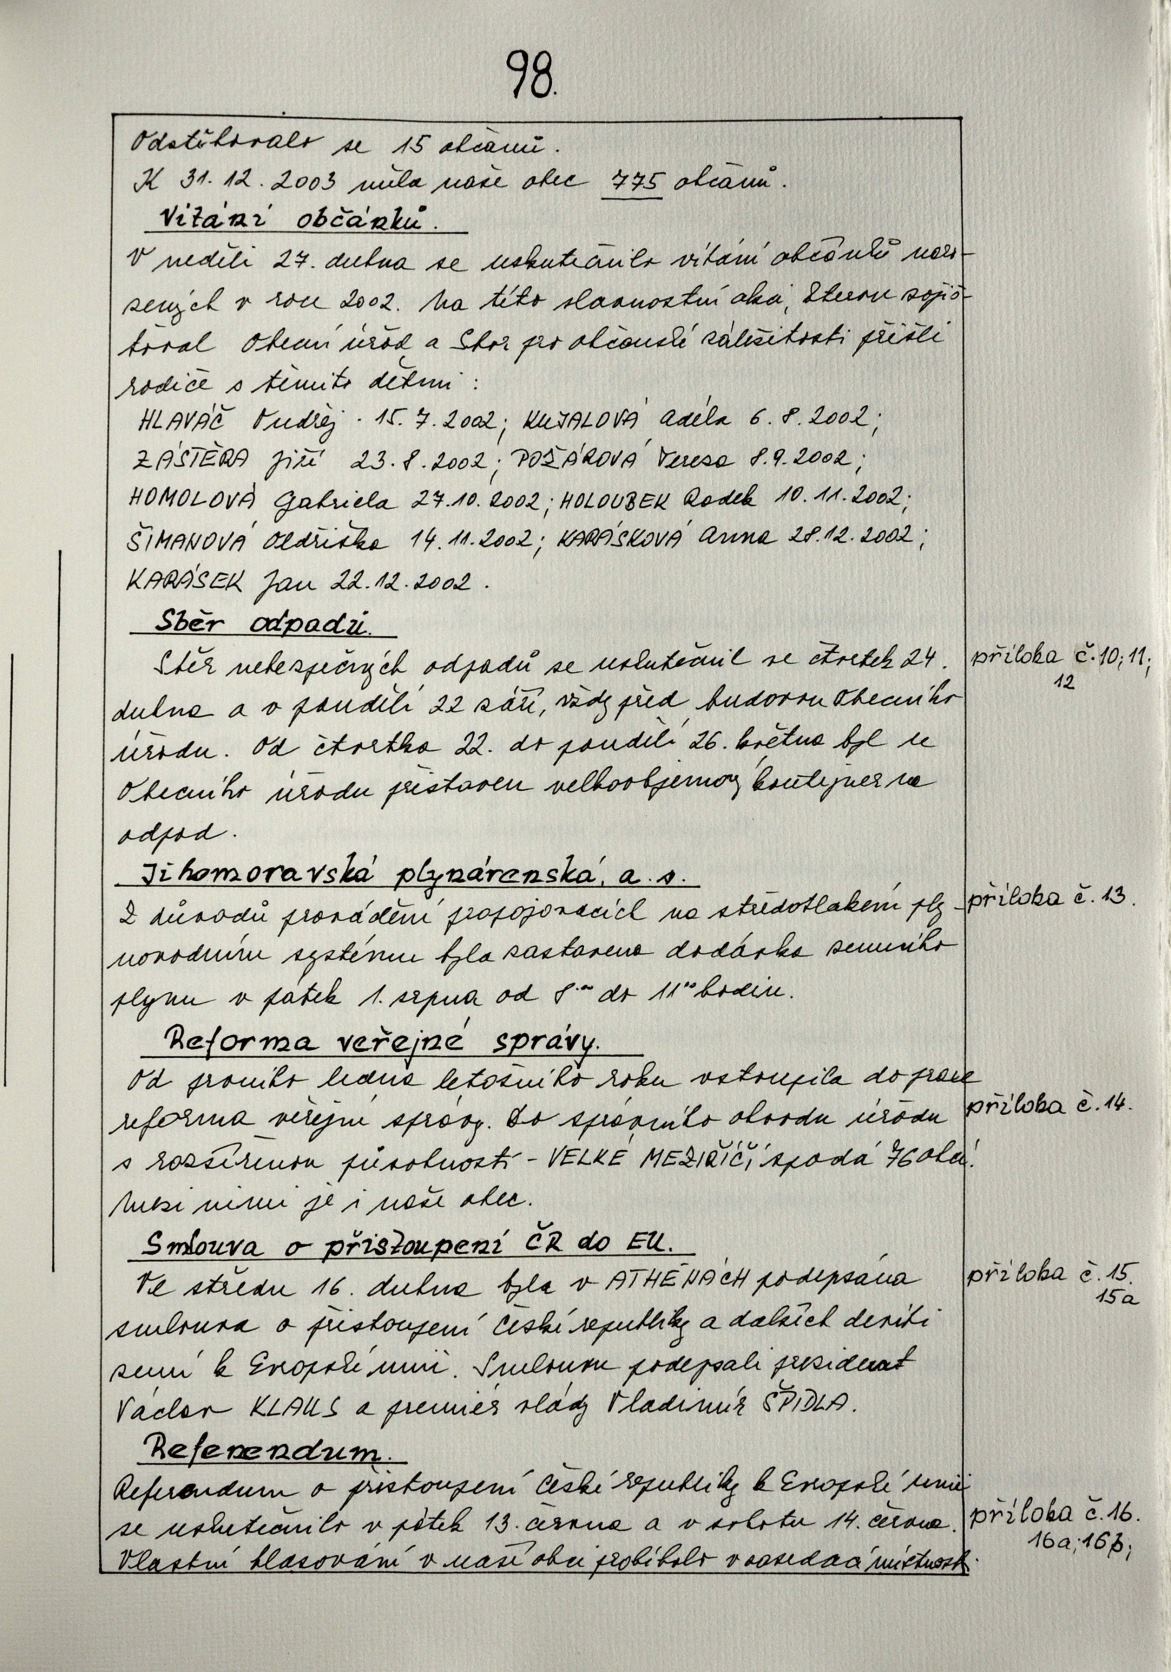 98.
Odstěhovalo se 15 občanů.
K 31.12.2003 měla naše obec 775 občanů.
Vítání občánků.
V neděli 27. dubna se uskutečnilo vítání občánků naro-
zených v roce 2002. Na této slavnostní akci, kterou zajiš-
ťoval Obecní úřad a Sbor pro občanské záležitosti přišli
rodiče s těmito dětmi:
HLAVÁČ Ondřej - 15.7.2002; KUJALOVÁ Adéla 6.8.2002;
ZÁŠTĚRA Jiří 23.8.2002; POŽÁROVÁ Tereza 8.9.2002;
HOMOLOVÁ Gabriela 27.10.2002; HOLOUBEK Radek 10.11.2002;
ŠIMANOVÁ Oldřiška 14.11.2002; KARÁSKOVÁ Anna 28.12.2002;
KARÁSEK Jan 22.12.2002.
Sběr odpadů.
Sběr nebezpečných odpadů se uskutečnil ve čtvrtek 24.
příloha č.10; 11;
12
dubna a v pondělí 22 září, vždy před budovou Obecního
úřadu. Od čtvrtka 22. do pondělí 26. května byl u
Obecního úřadu přistaven velkoobjemový kontejner na
odpad.
Jihomoravská plynárenská, a.s.
Z důvodů provádění propojovacích na středotlakém ply-
příloha č.13.
novodním systému byla zastavena dodávka zemního
plynu v pátek 1. srpna od 8.00 do 11.00 hodin.
Reforma veřejné správy.
Od prvního ledna letošního roku vstoupila do praxe
reforma veřejné správy. Do správního obvodu úřadu
příloha č.14.
s rozšířenou působností - VELKÉ MEZIŘÍČÍ spadá 76 obcí.
Mezi nimi je i naše obec.
Smlouva o přistoupení ČR do EU.
Ve středu 16. dubna byla v ATHÉNÁCH podepsána
příloha č.15.
15a
smlouva o přistoupení České republiky a dalších devíti
zemí k Evropské unii. Smlouvu podepsali prezident
Václav KLAUS a premiér vlády Vladimír ŠPIDLA.
Referendum.
Referendum o přistoupení České republiky k Evropské unii
se uskutečnilo v pátek 13. června a v sobotu 14. června.
příloha č.16.
16a; 16b;
Vlastní hlasování v naší obci probíhalo v zasedací místnosti.